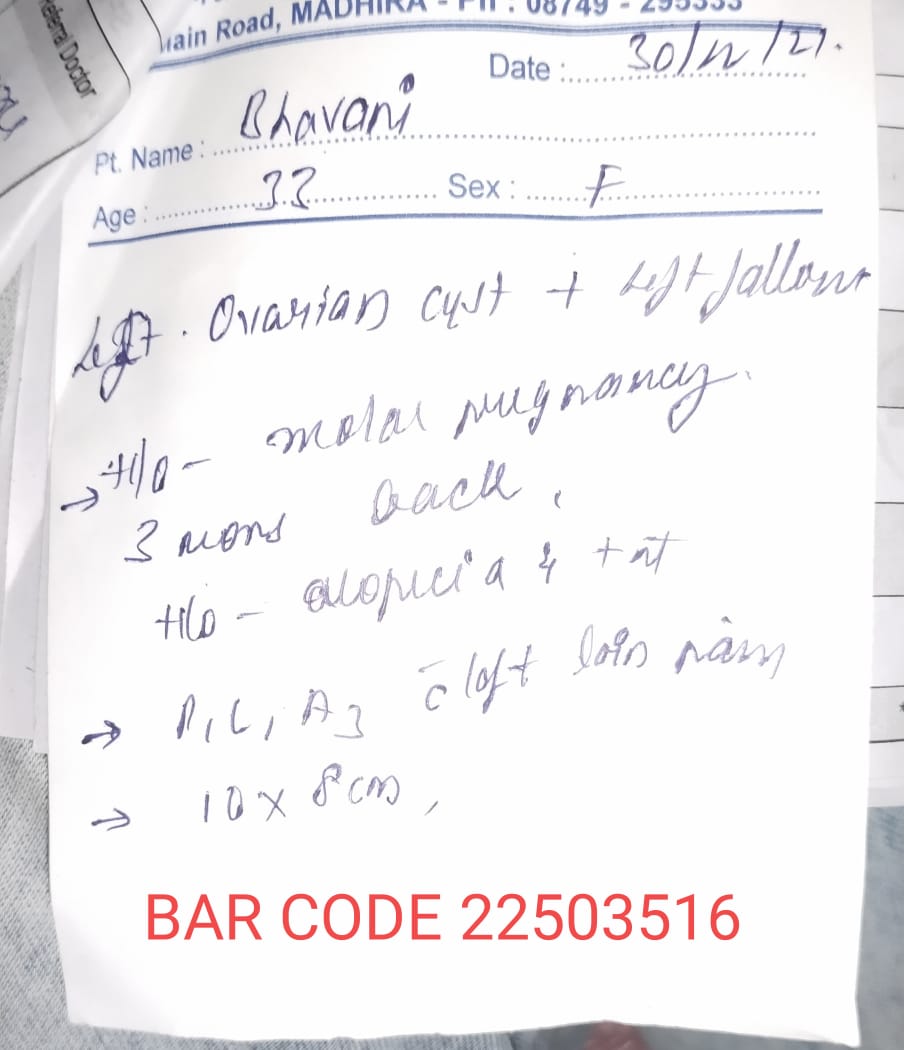 Main Road, MADHIRA - PH : 08749 - 295333
Referral Doctor
Date : 30/12/21.
Pt. Name : Bhavani
Age : 33 Sex : F
Left. Ovarian cyst + Left fallow
→ H/o - molar pregnancy.
3 mons back.
H/o - alopicia &
→ P1L1A3 c̄ left loin pain
→ 10 x 8 cm,
BAR CODE 22503516